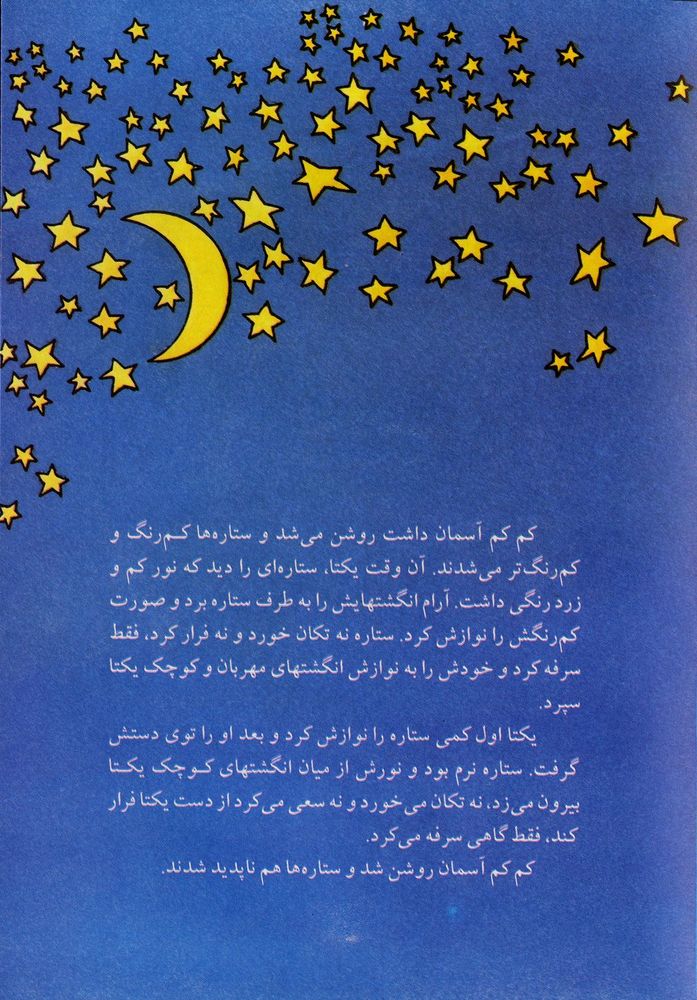 کم کم آسمان داشت روشن می‌شد و ستاره‌ها کم‌رنگ و
کم‌رنگ‌تر می‌شدند. آن وقت یکتا، ستاره‌ای را دید که نور کم و
زرد رنگی داشت. آرام انگشتهایش را به طرف ستاره برد و صورت
کم‌رنگش را نوازش کرد. ستاره نه تکان خورد و نه فرار کرد، فقط
سرفه کرد و خودش را به نوازش انگشتهای مهربان و کوچک یکتا
سپرد.
یکتا اول کمی ستاره را نوازش کرد و بعد او را توی دستش
گرفت. ستاره نرم بود و نورش از میان انگشتهای کوچک یکتا
بیرون می‌زد، نه تکان می‌خورد و نه سعی می‌کرد از دست یکتا فرار
کند، فقط گاهی سرفه می‌کرد.
کم کم آسمان روشن شد و ستاره‌ها هم ناپدید شدند.